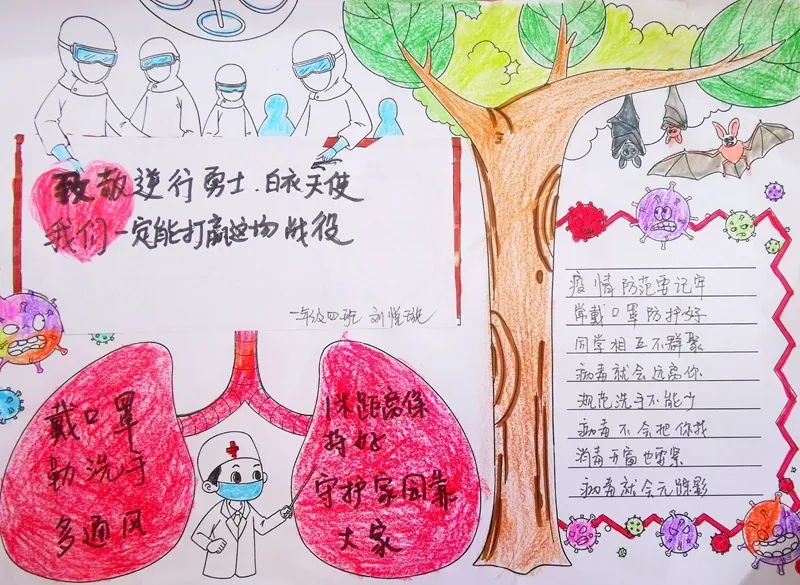 致敬逆行勇士.白衣天使
我们一定能打赢这场战役
一年级四班
戴口罩
勤洗手
多通风
1米距离保
持好
守护家园靠
大家
疫情防范要记牢
常戴口罩防护好
同学相互不群聚
病毒就会远离你
规范洗手不能少
病毒不会把你找
消毒开窗也要紧
病毒就会无踪影